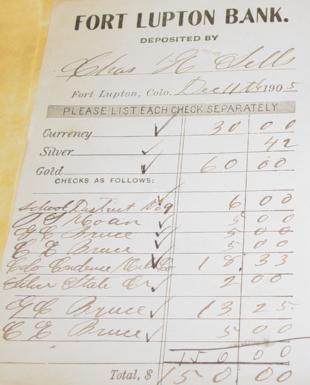 FORT LUPTON BANK.
DEPOSITED BY
Chas H Sells
Fort Lupton, Colo. Dec 11th 1905
PLEASE LIST EACH CHECK SEPARATELY
Currency 30 00
Silver 42
Gold 60 00
CHECKS AS FOLLOWS:
School District No 9 6 00
5 00
Bruce 5 00
C E Bruce 5 00
Colo 18 33
Silver State 2 00
Bruce 13 25
C E Bruce 5 00
150 00
Total, $ 150 00